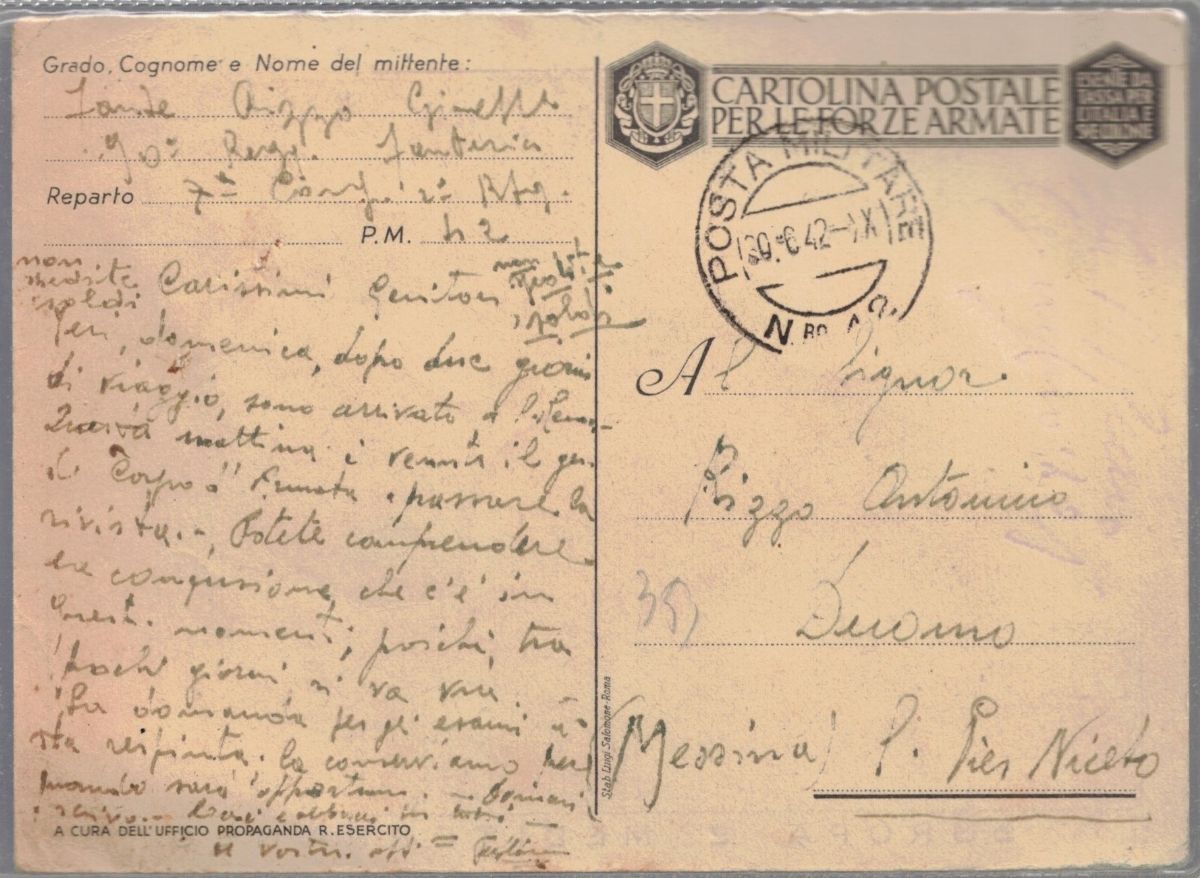 Grado, Cognome e Nome del mittente:
Rizzo
70° Regg. Fanteria
Reparto 7ª Comp. 2° Btg.
P.M. 42
non
spedite
soldi
Carissimi Genitori
non
soldi
Ieri, domenica, dopo due giorni
di viaggio, sono arrivato a
Questa mattina è venuto il gen.
di Corpo d'Armata a passare la
rivista. - Potete comprendere
la confusione che c'è in
questi momenti; poichè, tra
pochi giorni si va via
La domanda per gli esami è
sta respinta. La conserviamo per
quando sarà opportuno. - Domani
scrivo. - Baci e abbracci a tutti -
il vostro aff.
A CURA DELL'UFFICIO PROPAGANDA R. ESERCITO
CARTOLINA POSTALE
PER LE FORZE ARMATE
ESENTE DA
TASSA PER
L'ITALIA E
SPEDIZIONE
POSTA MILITARE
30.6.42-XX
N.RO
Al Signor.
Rizzo Antonino
393
Duomo
(Messina) S. Pier Niceto
Stab. Luigi Salomone-Roma